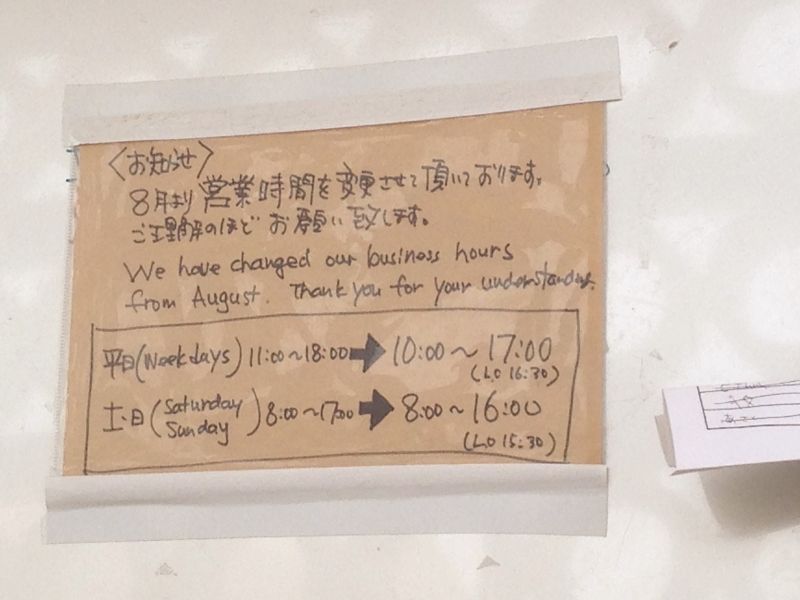 〈お知らせ〉
8月より営業時間を変更させて頂いております。
ご理解のほどお願い致します。
We have changed our business hours
from August. Thank you for your understanding.
平日(Weekdays) 11:00〜18:00➡10:00〜17:00
(L.O 16:30)
土・日(Saturday Sunday) 8:00〜17:00➡8:00〜16:00
(L.O 15:30)